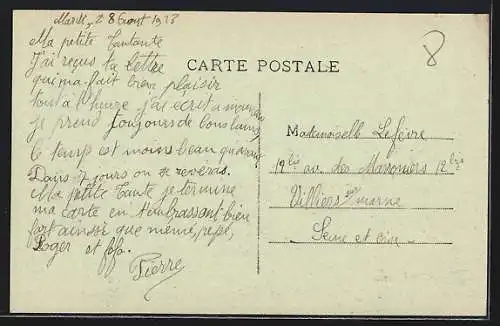 Mardi, 28 Aout 1923
Ma petite Tantante
J'ai reçus ta lettre
qui ma fait bien plaisir
tout a l'heure j'ai ecrit a
je prend toujours de bons bains
le temps est moins beau
Dans jours on se reveras.
Ma petite tante je termine
ma carte en t'embrassant bien
fort ainssie que memé, pepé,
Roger et fofo.
Pierre
CARTE POSTALE
8
Mademoiselle Lefèvre
12 bis av. des Maroniers 12 bis
Villiers sur marne
Seine et Oise